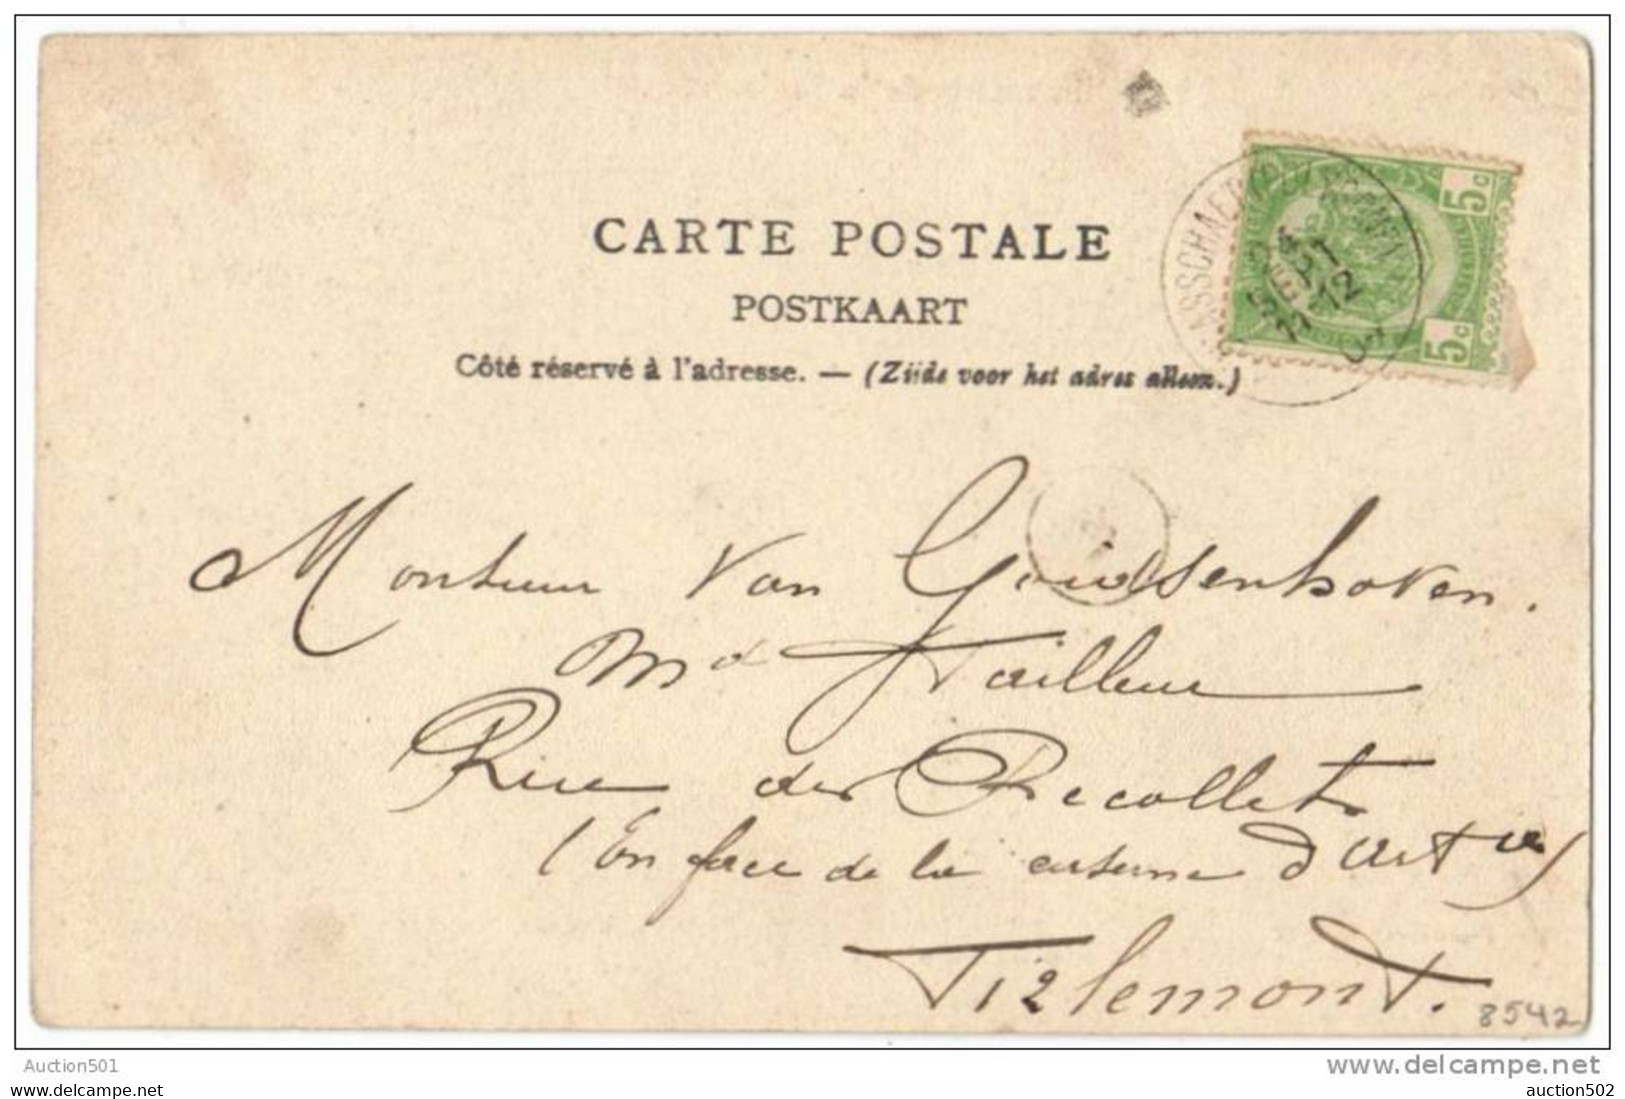 CARTE POSTALE
POSTKAART
Côté réservé à l'adresse. — (Zijde voor het adres alleen.)
5c
5c
SEPT
11-12
Monsieur Van Goidsenhoven.
Md Tailleur
Rue des Recollets
(En face de la caserne d'Artie)
Tirlemont.
8542
Auction501
www.delcampe.net
auction502